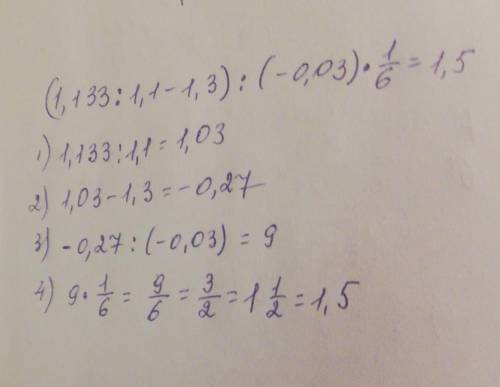 (1,133:1,1-1,3):(-0,03)·1/6=1,5
1) 1,133:1,1=1,03
2) 1,03-1,3=-0,27
3) -0,27:(-0,03)=9
4) 9·1/6=9/6=3/2=1 1/2=1,5